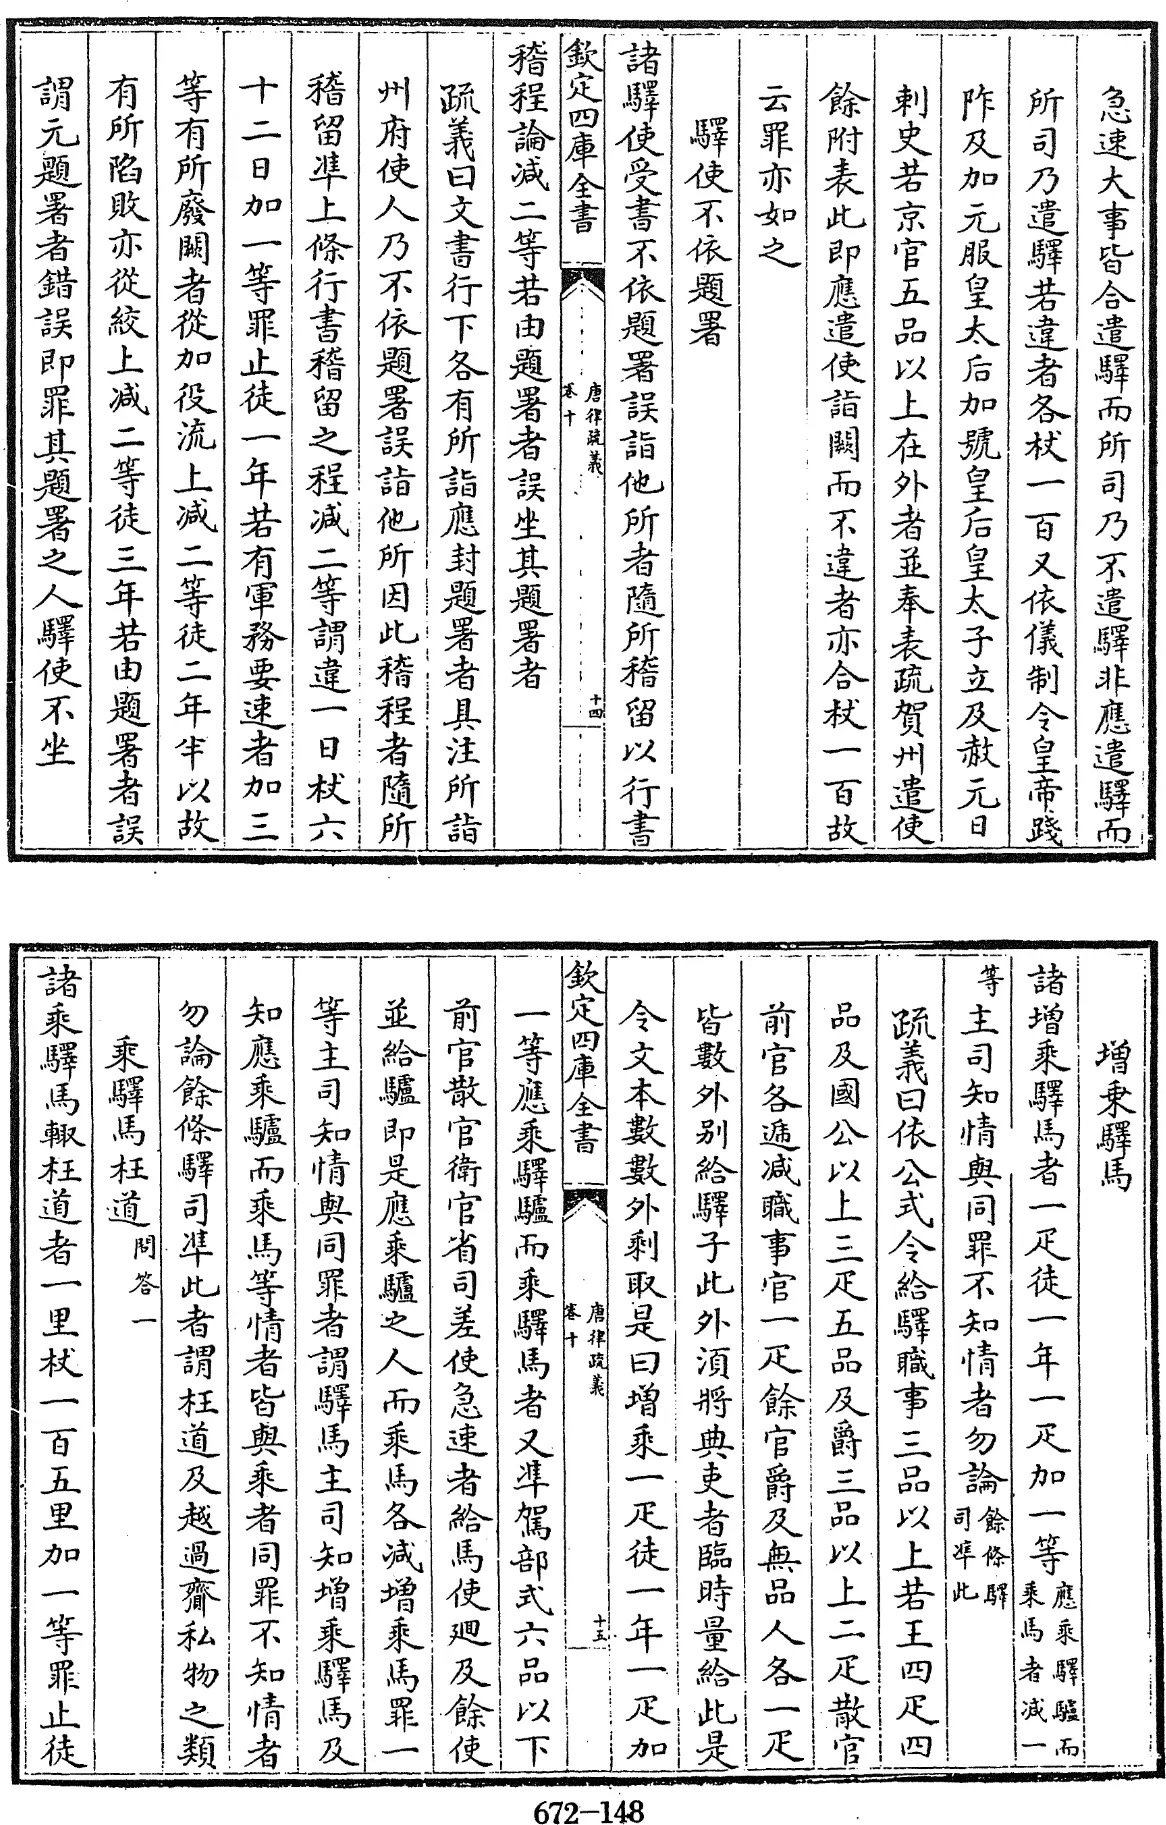 急速大事皆合遣驛而所司乃不遣驛非應遣驛而
所司乃遣驛若違者各杖一百又依儀制令皇帝踐
阼及加元服皇太后加號皇后皇太子立及赦元日
剌史若京官五品以上在外者並奉表疏賀州遣使
餘附表此即應遣使詣闕而不違者亦合杖一百故
云罪亦如之
驛使不依題署
諸驛使受書不依題署誤詣他所者隨所稽留以行書
欽定四庫全書
唐律疏義
卷十
十四
稽程論減二等若由題署者誤坐其題署者
疏義曰文書行下各有所詣應封題署者具注所詣
州府使人乃不依題署誤詣他所因此稽程者隨所
稽留準上條行書稽留之程減二等謂違一日杖六
十二日加一等罪止徒一年若有軍務要速者加三
等有所廢闕者從加役流上減二等徒二年半以故
有所陷敗亦從絞上減二等徒三年若由題署者誤
謂元題署者錯誤即罪其題署之人驛使不坐
增乗驛馬
諸增乘驛馬者一疋徒一年一疋加一等應乘驛驢而
乘馬者減一
等主司知情與同罪不知情者勿論餘條驛
司準此
疏義曰依公式令給驛職事三品以上若王四疋四
品及國公以上三疋五品及爵三品以上二疋散官
前官各遞減職事官一疋餘官爵及無品人各一疋
皆數外別給驛子此外須將典吏者臨時量給此是
令文本數數外剩取是曰增乘一疋徒一年一疋加
欽定四庫全書
唐律疏義
卷十
十五
一等應乘驛驢而乘驛馬者又準駕部式六品以下
前官散官衛官省司差使急速者給馬使廻及餘使
並給驢即是應乘驢之人而乘馬各減增乘馬罪一
等主司知情與同罪者謂驛馬主司知增乘驛馬及
知應乘驢而乘馬等情者皆與乘者同罪不知情者
勿論餘條驛司準此者謂枉道及越過齎私物之類
乘驛馬枉道問答一
諸乘驛馬輙枉道者一里杖一百五里加一等罪止徒
672-148